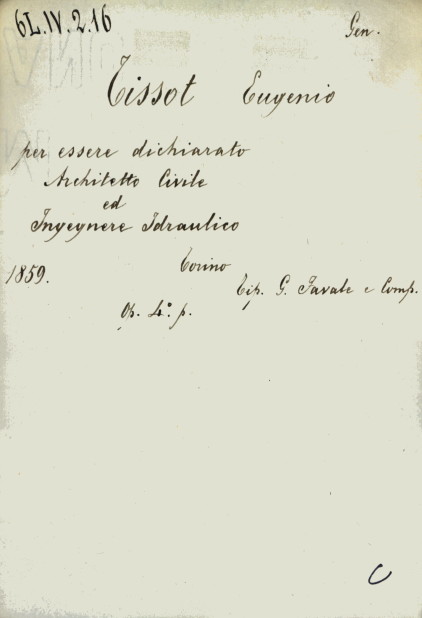 6L.IV.2.16 Gen.
Tissot Eugenio
per essere dichiarato
Architetto Civile
ed
Ingegnere Idraulico
Torino
1859. Tip. G. Favale e Comp.
Op. 4.° p.
C